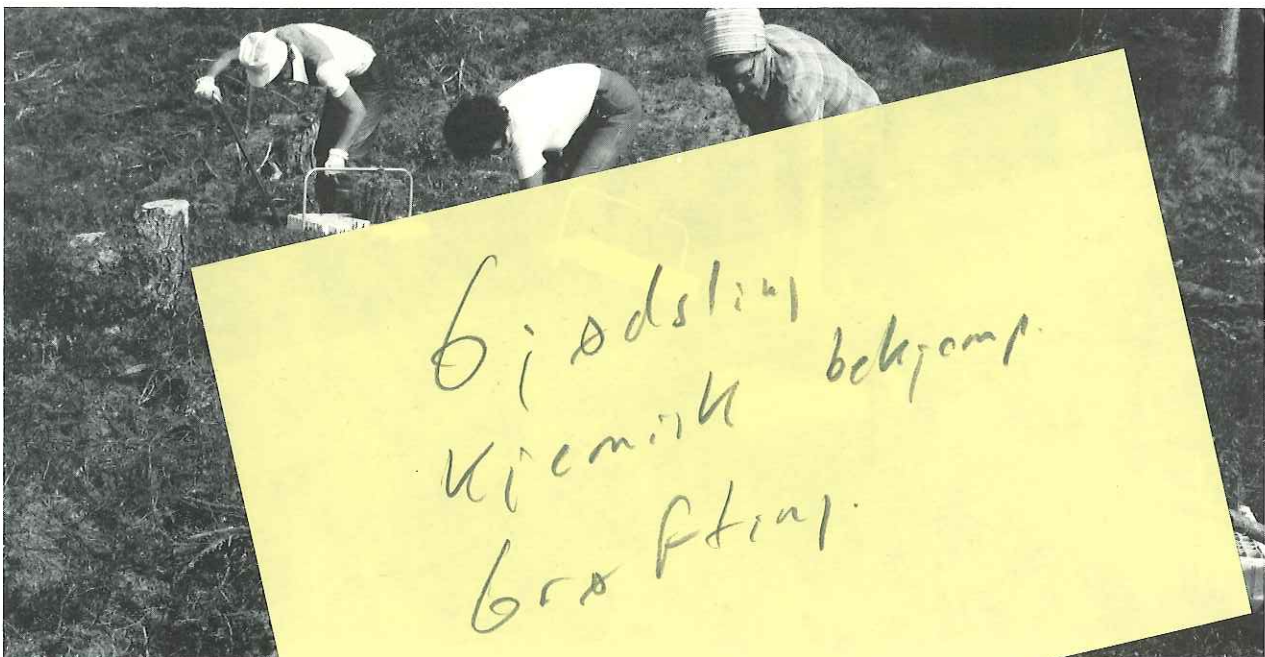 Gjødsling
Kjemisk bekjemp.
Grøfting.